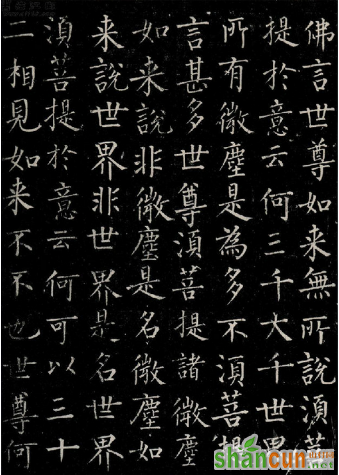 佛言世尊如来無所說須菩
提於意云何三千大千世界
所有微塵是為多不須菩提
言甚多世尊須菩提諸微塵
如来說非微塵是名微塵如
来說世界非世界是名世界
須菩提於意云何可以三十
二相見如来不不也世尊何
shancun